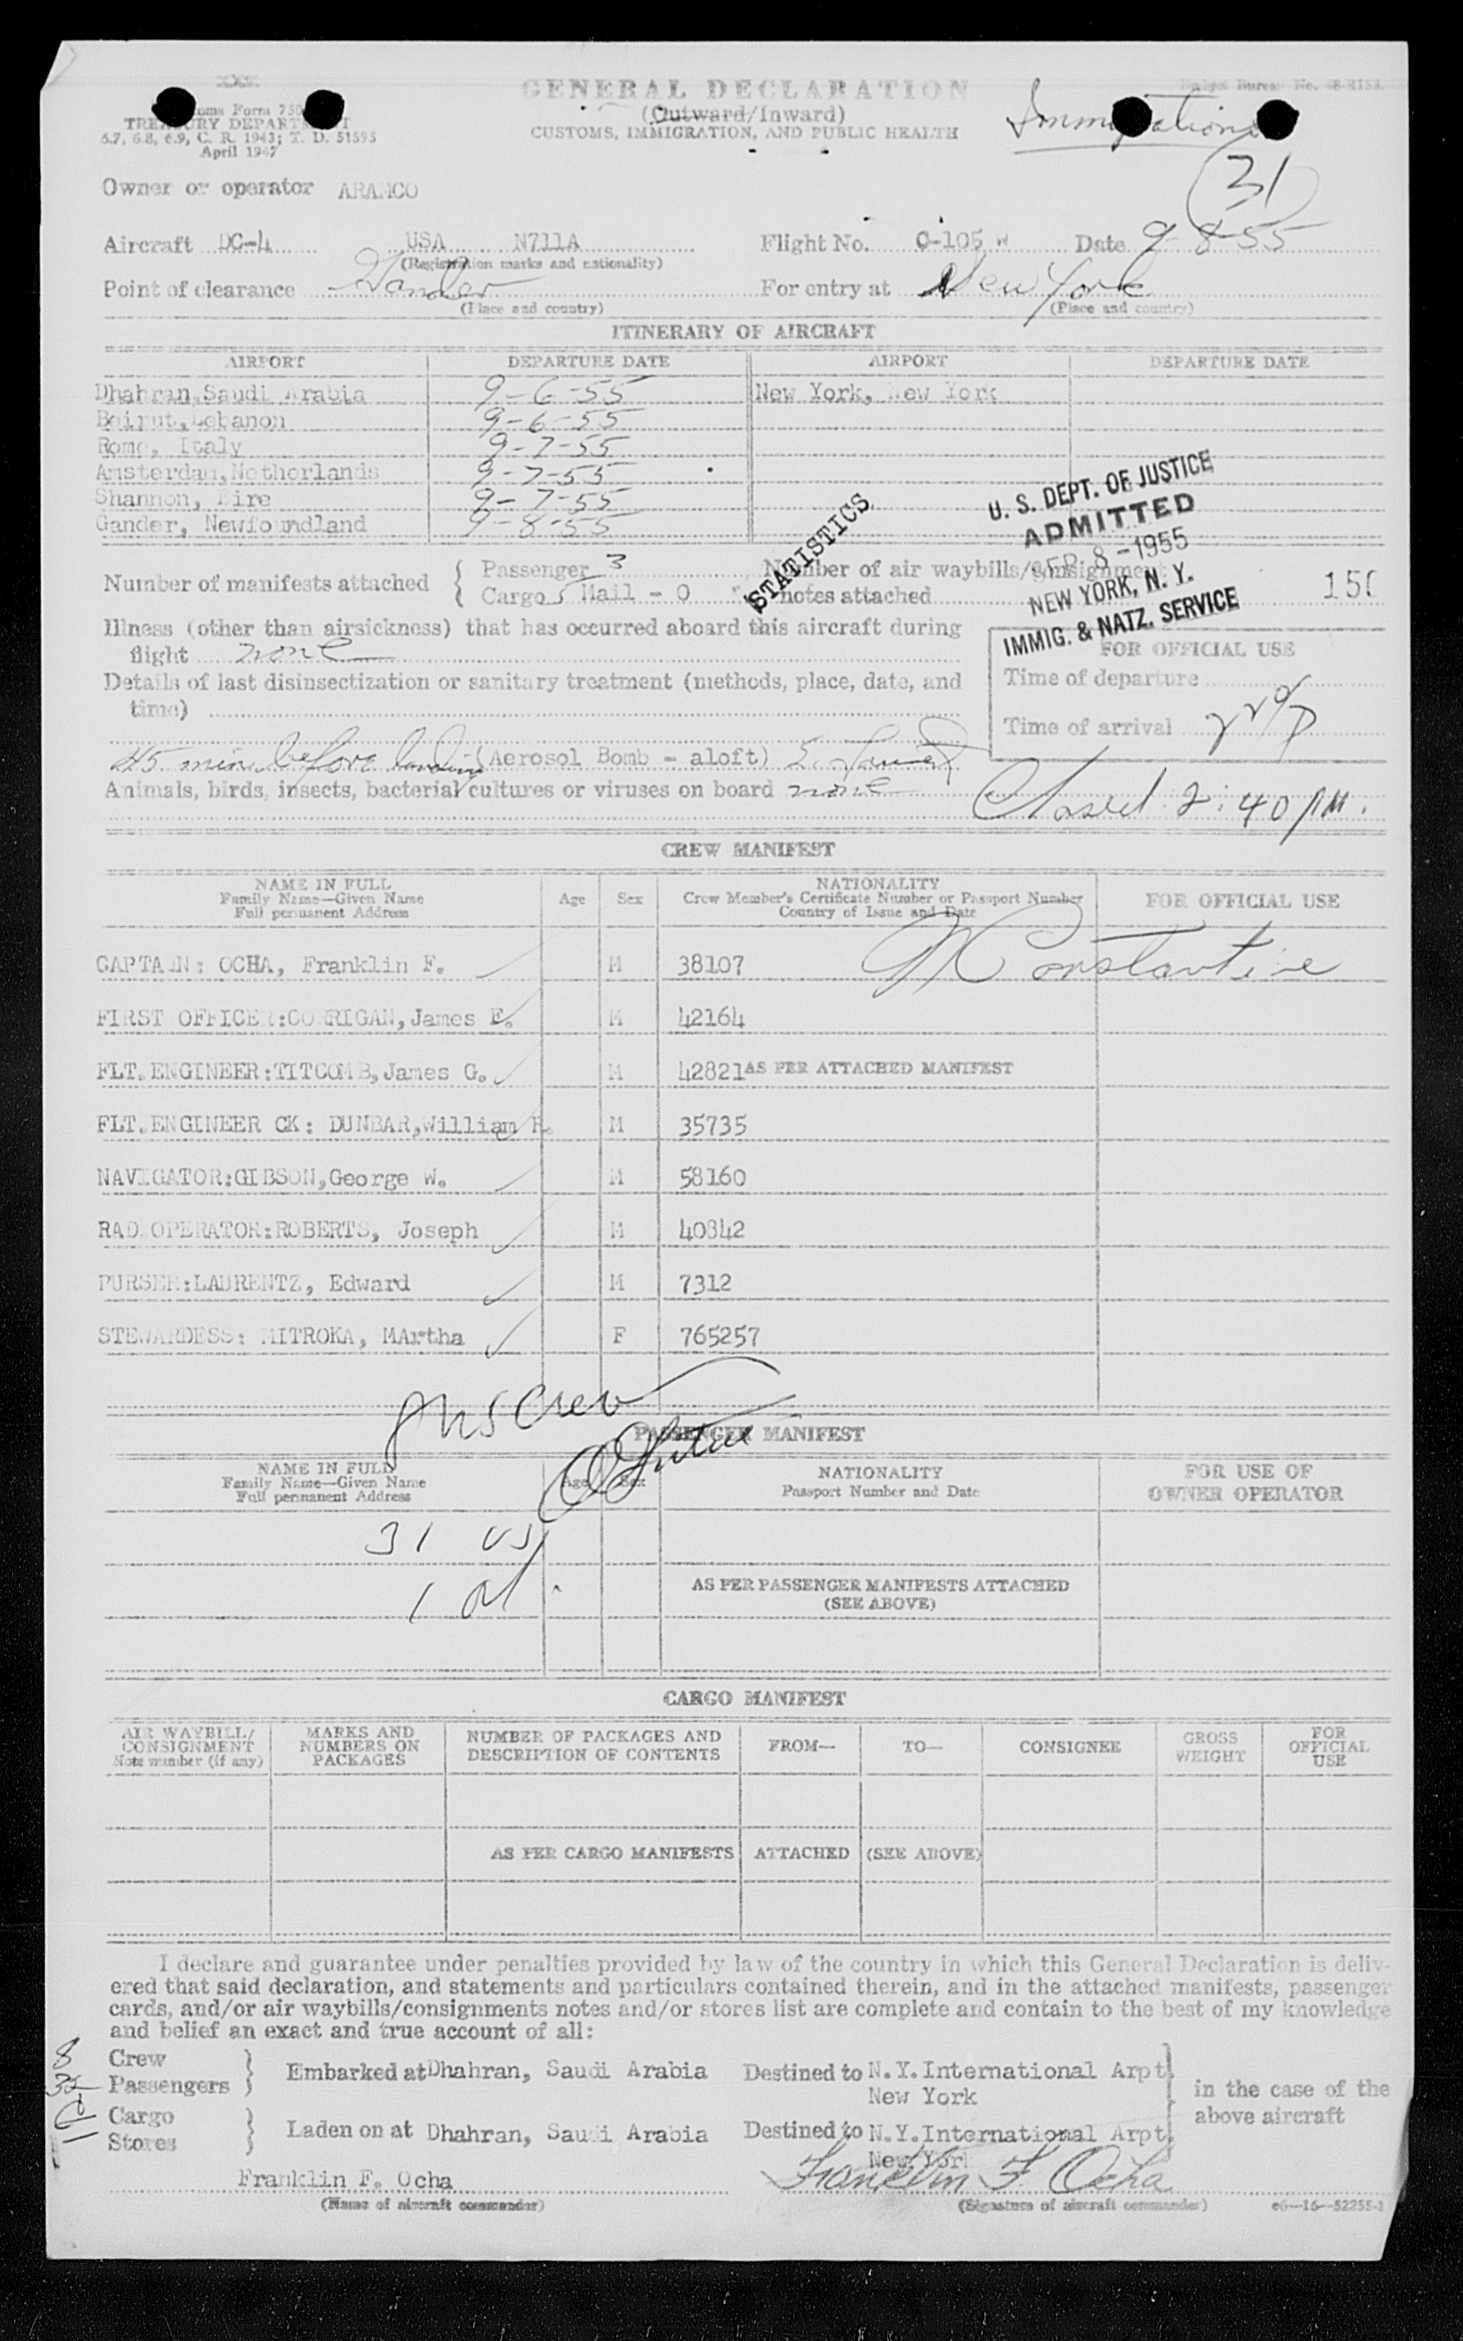 GENERAL DECLARATION
(Outward/Inward)
CUSTOMS, IMMIGRATION, AND PUBLIC HEALTH
TREASURY DEPARTMENT
6.7, 6.8, 6.9, C. R. 1943; T. D. 51595
April 1947
31
Owner or operator ARAMCO
Aircraft DC-4 USA N711A Flight No. O-105 W Date 9-8-55
(Registration marks and nationality)
Point of clearance Gander For entry at New York
(Place and country) (Place and country)
ITINERARY OF AIRCRAFT
AIRPORT DEPARTURE DATE AIRPORT DEPARTURE DATE
Dhahran, Saudi Arabia 9-6-55 New York, New York
Beirut, Lebanon 9-6-55
Rome, Italy 9-7-55
Amsterdam, Netherlands 9-7-55
Shannon, Eire 9-7-55
Gander, Newfoundland 9-8-55
STATISTICS
U. S. DEPT. OF JUSTICE
ADMITTED
SEP 8 - 1955
NEW YORK, N. Y.
IMMIG. & NATZ. SERVICE
Number of manifests attached { Passenger 3 Number of air waybills/consignment
Cargo 5 Mail - 0 notes attached 150
Illness (other than airsickness) that has occurred aboard this aircraft during
flight none
FOR OFFICIAL USE
Details of last disinsectization or sanitary treatment (methods, place, date, and
time)
Time of departure
Time of arrival
45 min before landing (Aerosol Bomb - aloft)
Animals, birds, insects, bacterial cultures or viruses on board none
Closed 2:40 PM.
CREW MANIFEST
NAME IN FULL
Family Name—Given Name
Full permanent Address
Age Sex
NATIONALITY
Crew Member's Certificate Number or Passport Number
Country of Issue and Date
FOR OFFICIAL USE
CAPTAIN: OCHA, Franklin F. M 38107 Constantine
FIRST OFFICER:CORRIGAN,James E. M 42164
FLT.ENGINEER:TITCOMB,James G. M 42821 AS PER ATTACHED MANIFEST
FLT.ENGINEER CK: DUNBAR,William R. M 35735
NAVIGATOR:GIBSON,George W. M 58160
RAD OPERATOR:ROBERTS, Joseph M 40842
PURSER:LAURENTZ, Edward M 7312
STEWARDESS: MITROKA, MArtha F 765257
Crew
PASSENGER MANIFEST
NAME IN FULL
Family Name—Given Name
Full permanent Address
Age Sex
NATIONALITY
Passport Number and Date
FOR USE OF
OWNER OPERATOR
31 US
1 al
AS PER PASSENGER MANIFESTS ATTACHED
(SEE ABOVE)
CARGO MANIFEST
AIR WAYBILL/
CONSIGNMENT
Note number (if any)
MARKS AND
NUMBERS ON
PACKAGES
NUMBER OF PACKAGES AND
DESCRIPTION OF CONTENTS
FROM— TO— CONSIGNEE
GROSS
WEIGHT
FOR
OFFICIAL
USE
AS PER CARGO MANIFESTS ATTACHED (SEE ABOVE)
I declare and guarantee under penalties provided by law of the country in which this General Declaration is deliv-
ered that said declaration, and statements and particulars contained therein, and in the attached manifests, passenger
cards, and/or air waybills/consignments notes and/or stores list are complete and contain to the best of my knowledge
and belief an exact and true account of all:
8 Crew
Passengers
} Embarked at Dhahran, Saudi Arabia Destined to N.Y.International Arpt
New York
in the case of the
above aircraft
Cargo
Stores
} Laden on at Dhahran, Saudi Arabia Destined to N.Y.International Arpt.
New York
Franklin F. Ocha Franklin F. Ocha
(Name of aircraft commander) (Signature of aircraft commander) c6—16—52255-1